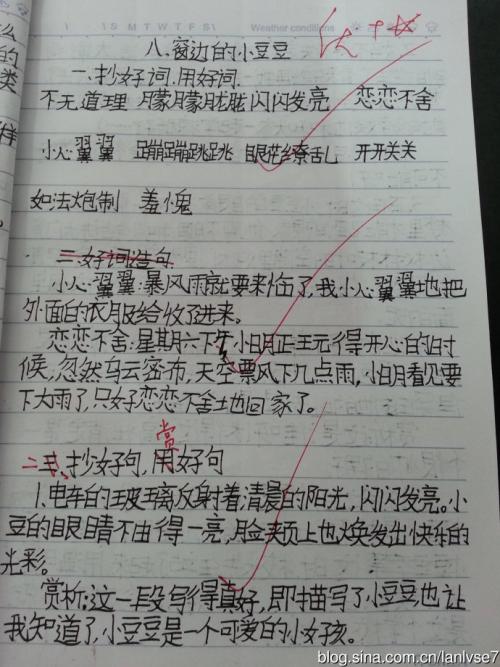 \ \S M T W T F S\ Weather conditions
八、窗边的小豆豆
一、抄好词,用好词.
不无道理 朦朦胧胧 闪闪发亮 恋恋不舍
小心翼翼 蹦蹦跳跳 眼花缭乱 开开关关
如法炮制 羞愧
二.好词造句.
小心翼翼:暴风雨就要来临了,我小心翼翼地把
外面的衣服给收了进来。
恋恋不舍:星期六下午,小明正玩得开心的时
候,忽然乌云密布,天空票风下九点雨,小明看见要
下大雨了,只好恋恋不舍地回家了。
赏
二、抄好句,用好句
1.电车的玻璃放射着清晨的阳光,闪闪发亮。小
豆的眼睛不由得一亮,脸颊上也焕发出快乐的
光彩。
赏析:这一段写得真好,即描写了小豆豆,也让
我知道了,小豆豆是一个可爱的小女孩。
blog.sina.com.cn/lanlvse7